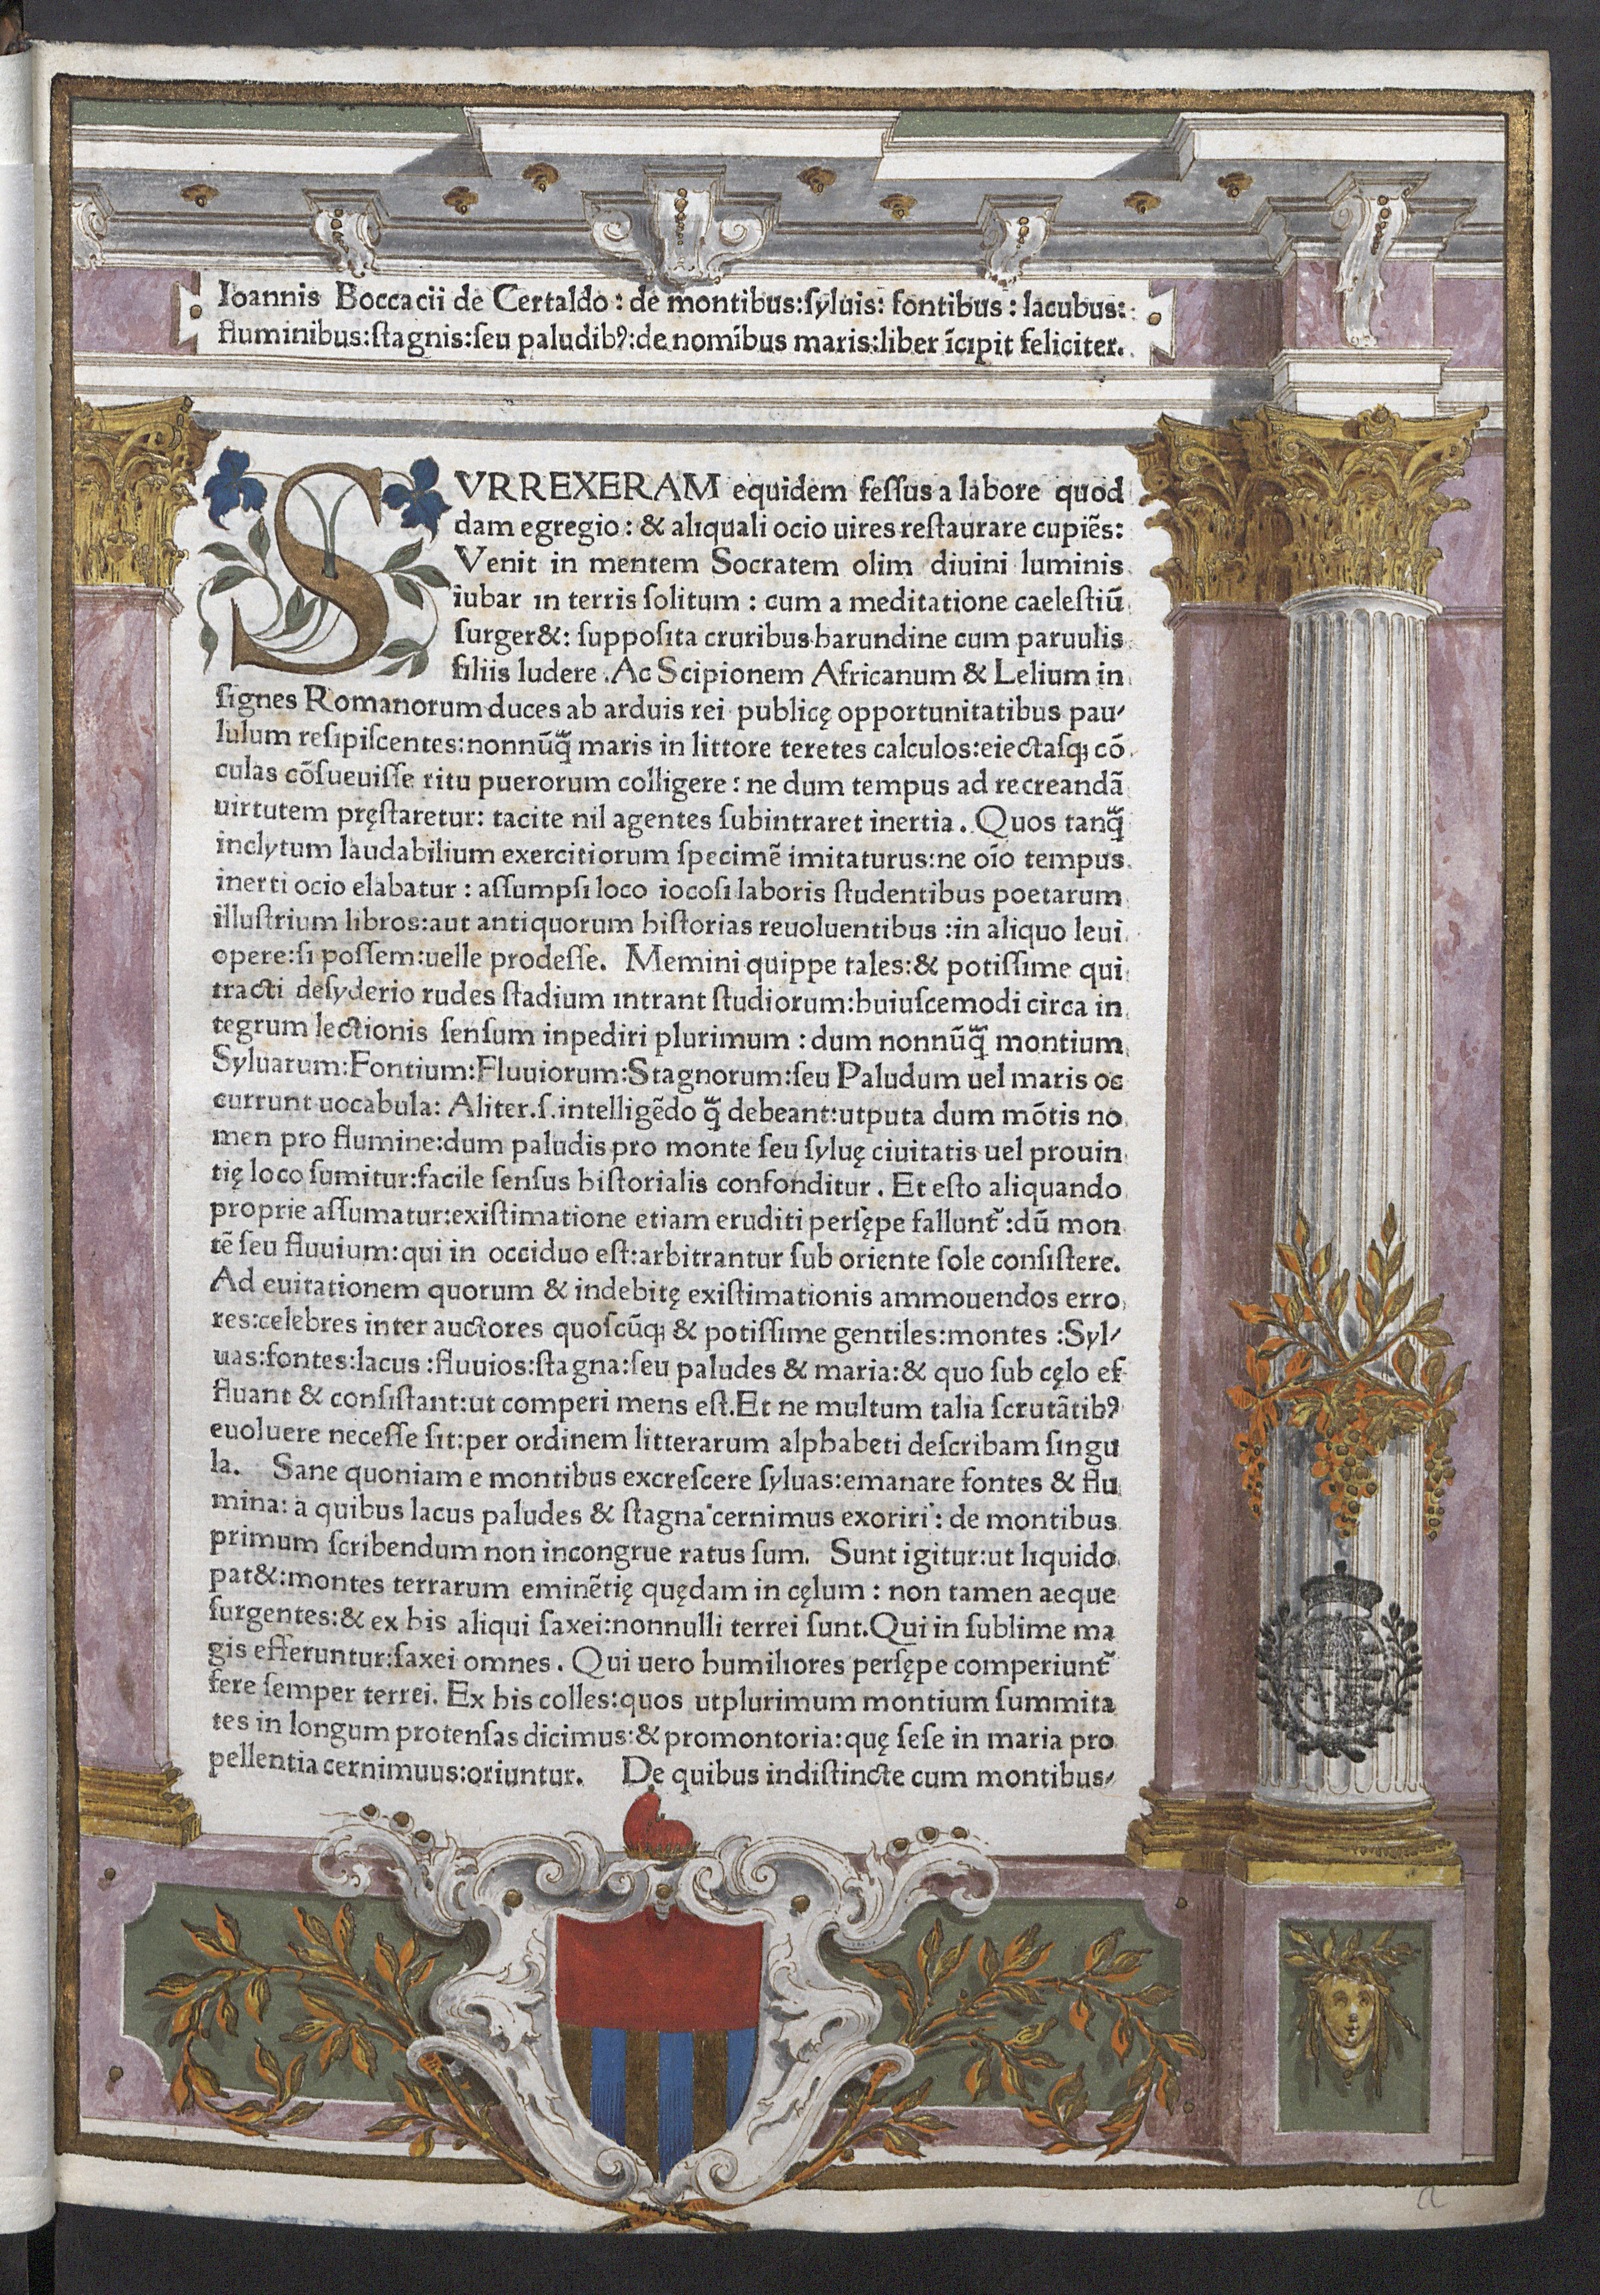 Ioannis Boccacii de Certaldo : de montibus:ſyluis: fontibus : lacubus:
fluminibus:ſtagnis:ſeu paludibꝰ:de nomībus maris:liber īcipit feliciter.
SVRREXERAM equidem feſſus a labore quod
dam egregio : & aliquali ocio uires reſtaurare cupiēs:
Venit in mentem Socratem olim diuini luminis
iubar in terris ſolitum : cum a meditatione caeleſtiū
ſurger&: ſuppoſita cruribus harundine cum paruulis
filiis ludere . Ac Scipionem Africanum & Lelium in
ſignes Romanorum duces ab arduis rei publicę opportunitatibus pau/
lulum reſipiſcentes:nonnūq̄ maris in littore teretes calculos:eiectaſqꝫ cō
culas cōſueuiſſe ritu puerorum colligere : ne dum tempus ad recreandā
uirtutem pręſtaretur: tacite nil agentes ſubintraret inertia . Quos tanq̄
inclytum laudabilium exercitiorum ſpecimē imitaturus:ne oīo tempus
inerti ocio elabatur : aſſumpſi loco iocoſi laboris ſtudentibus poetarum
illuſtrium libros:aut antiquorum hiſtorias reuoluentibus :in aliquo leui
opere:ſi poſſem:uelle prodeſſe. Memini quippe tales:& potiſſime qui
tracti deſyderio rudes ſtadium intrant ſtudiorum:huiuſcemodi circa in
tegrum lectionis ſenſum inpediri plurimum : dum nonnūq̄ montium
Syluarum:Fontium:Fluuiorum:Stagnorum:ſeu Paludum uel maris oc
currunt uocabula: Aliter.ſ.intelligēdo q̄ debeant:utputa dum mōtis no
men pro flumine:dum paludis pro monte ſeu ſyluę ciuitatis uel prouin
tię loco ſumitur:facile ſenſus hiſtorialis confonditur . Et eſto aliquando
proprie aſſumatur:exiſtimatione etiam eruditi perſępe fallunt᷑ :dū mon
tē ſeu fluuium:qui in occiduo eſt:arbitrantur ſub oriente ſole conſiſtere.
Ad euitationem quorum & indebitę exiſtimationis ammouendos erro
res:celebres inter auctores quoſcūqꝫ & potiſſime gentiles:montes :Syl/
uas:fontes:lacus :fluuios:ſtagna:ſeu paludes & maria:& quo ſub cęlo ef
fluant & conſiſtant:ut comperi mens eſt.Et ne multum talia ſcrutātibꝰ
euoluere neceſſe ſit:per ordinem litterarum alphabeti deſcribam ſingu
la. Sane quoniam e montibus excreſcere ſyluas:emanare fontes & flu
mina: a quibus lacus paludes & ſtagna cernimus exoriri : de montibus
primum ſcribendum non incongrue ratus ſum. Sunt igitur:ut liquido
pat&:montes terrarum eminētię quędam in cęlum : non tamen aeque
ſurgentes:& ex his aliqui ſaxei:nonnulli terrei ſunt.Qui in ſublime ma
gis efferuntur:ſaxei omnes . Qui uero humiliores perſępe comperiunt᷑
fere ſemper terrei. Ex his colles:quos utplurimum montium ſummita
tes in longum protenſas dicimus:& promontoria:quę ſeſe in maria pro
pellentia cernimuus:oriuntur. De quibus indiſtincte cum montibus/
a